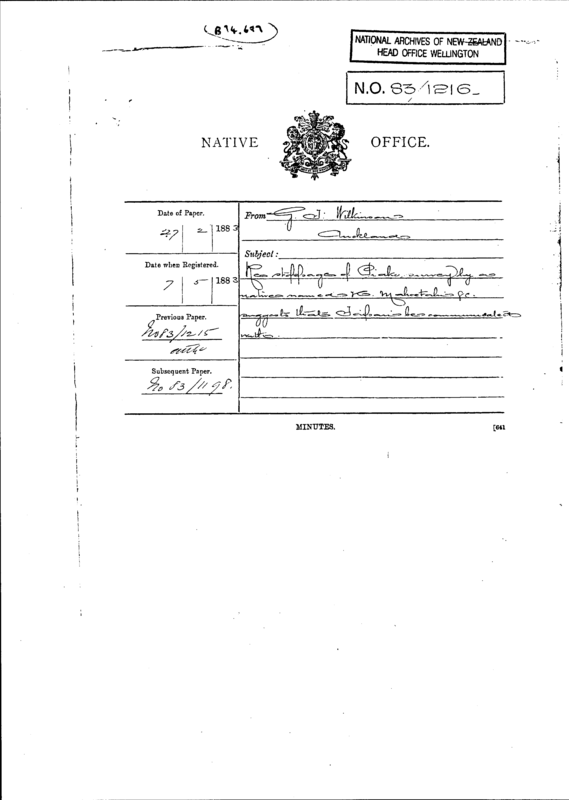 (B 74.687)
NATIONAL ARCHIVES OF NEW ZEALAND
HEAD OFFICE WELLINGTON
N.O. 83/1216
NATIVE OFFICE.
Date of Paper.
27 | 2 | 1883
From G. T. Wilkinson
Auckland
Subject:
Date when Registered.
7 | 5 | 1883
Re stoppage of Piako survey by
natives named
suggests that be communicated
with
Previous Paper.
No 83/1215
Subsequent Paper.
No 83/1198.
MINUTES. [641